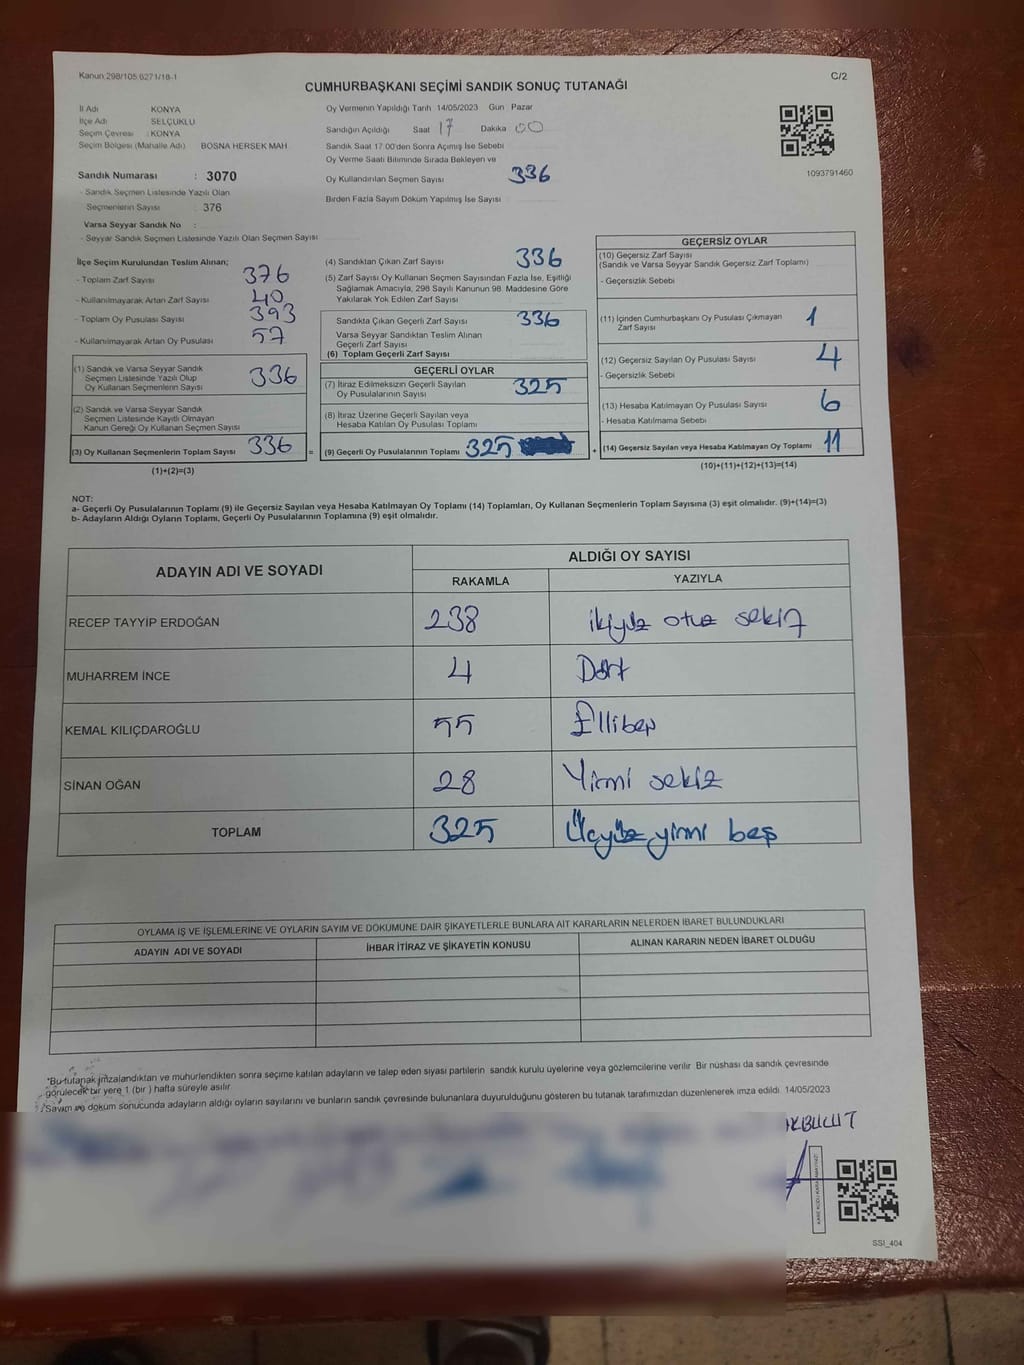 Kanun 298/105.6271/18-1
C/2
CUMHURBAŞKANI SEÇİMİ SANDIK SONUÇ TUTANAĞI
İl Adı KONYA
İlçe Adı SELÇUKLU
Seçim Çevresi : KONYA
Seçim Bölgesi (Mahalle Adı) BOSNA HERSEK MAH.
Oy Vermenin Yapıldığı Tarih 14/05/2023 Gün Pazar
Sandığın Açıldığı Saat 17 Dakika 00
Sandık Saat 17:00'den Sonra Açılmış İse Sebebi
Oy Verme Saati Bitiminde Sırada Bekleyen ve
Oy Kullandırılan Seçmen Sayısı 336
Birden Fazla Sayım Döküm Yapılmış İse Sayısı
1093791460
Sandık Numarası : 3070
- Sandık Seçmen Listesinde Yazılı Olan
Seçmenlerin Sayısı : 376
Varsa Seyyar Sandık No :
- Seyyar Sandık Seçmen Listesinde Yazılı Olan Seçmen Sayısı
İlçe Seçim Kurulundan Teslim Alınan;
- Toplam Zarf Sayısı 376
- Kullanılmayarak Artan Zarf Sayısı 40
- Toplam Oy Pusulası Sayısı 393
- Kullanılmayarak Artan Oy Pusulası 57
(1) Sandık ve Varsa Seyyar Sandık
Seçmen Listesinde Yazılı Olup
Oy Kullanan Seçmenlerin Sayısı 336
(2) Sandık ve Varsa Seyyar Sandık
Seçmen Listesinde Kayıtlı Olmayan
Kanun Gereği Oy Kullanan Seçmen Sayısı
(3) Oy Kullanan Seçmenlerin Toplam Sayısı 336 =
(1)+(2)=(3)
(4) Sandıktan Çıkan Zarf Sayısı 336
(5) Zarf Sayısı Oy Kullanan Seçmen Sayısından Fazla İse, Eşitliği
Sağlamak Amacıyla, 298 Sayılı Kanunun 98. Maddesine Göre
Yakılarak Yok Edilen Zarf Sayısı :
Sandıkta Çıkan Geçerli Zarf Sayısı 336
Varsa Seyyar Sandıktan Teslim Alınan
Geçerli Zarf Sayısı
(6) Toplam Geçerli Zarf Sayısı
GEÇERLİ OYLAR
(7) İtiraz Edilmeksizin Geçerli Sayılan
Oy Pusulalarının Sayısı 325
(8) İtiraz Üzerine Geçerli Sayılan veya
Hesaba Katılan Oy Pusulası Toplamı
(9) Geçerli Oy Pusulalarının Toplamı 325 +
GEÇERSİZ OYLAR
(10) Geçersiz Zarf Sayısı
(Sandık ve Varsa Seyyar Sandık Geçersiz Zarf Toplamı)
- Geçersizlik Sebebi
(11) İçinden Cumhurbaşkanı Oy Pusulası Çıkmayan
Zarf Sayısı 1
(12) Geçersiz Sayılan Oy Pusulası Sayısı 4
- Geçersizlik Sebebi
(13) Hesaba Katılmayan Oy Pusulası Sayısı 6
- Hesaba Katılmama Sebebi
(14) Geçersiz Sayılan veya Hesaba Katılmayan Oy Toplamı 11
(10)+(11)+(12)+(13)=(14)
NOT:
a- Geçerli Oy Pusulalarının Toplamı (9) ile Geçersiz Sayılan veya Hesaba Katılmayan Oy Toplamı (14) Toplamları, Oy Kullanan Seçmenlerin Toplam Sayısına (3) eşit olmalıdır. (9)+(14)=(3)
b- Adayların Aldığı Oyların Toplamı, Geçerli Oy Pusulalarının Toplamına (9) eşit olmalıdır.
ADAYIN ADI VE SOYADI
ALDIĞI OY SAYISI
RAKAMLA YAZIYLA
RECEP TAYYİP ERDOĞAN 238 ikiyüz otuz sekiz
MUHARREM İNCE 4 Dört
KEMAL KILIÇDAROĞLU 55 Ellibeş
SİNAN OĞAN 28 Yirmi sekiz
TOPLAM 325 Üçyüz yirmi beş
OYLAMA İŞ VE İŞLEMLERİNE VE OYLARIN SAYIM VE DÖKÜMÜNE DAİR ŞİKAYETLERLE BUNLARA AİT KARARLARIN NELERDEN İBARET BULUNDUKLARI
ADAYIN ADI VE SOYADI İHBAR İTİRAZ VE ŞİKAYETİN KONUSU ALINAN KARARIN NEDEN İBARET OLDUĞU
*Bu tutanak imzalandıktan ve mühürlendikten sonra seçime katılan adayların ve talep eden siyasi partilerin sandık kurulu üyelerine veya gözlemcilerine verilir. Bir nüshası da sandık çevresinde
görülecek bir yere 1 (bir) hafta süreyle asılır.
Sayım ve döküm sonucunda adayların aldığı oyların sayılarını ve bunların sandık çevresinde bulunanlara duyurulduğunu gösteren bu tutanak tarafımızdan düzenlenerek imza edildi. 14/05/2023
AKBULUT
SSI_404